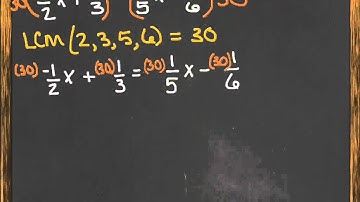 30(1/2x + 1/3) (1/5x 1/6)30
LCM (2,3,5,6) = 30
(30) -1/2 x + (30) 1/3 = (30) 1/5 x - (30) 1/6